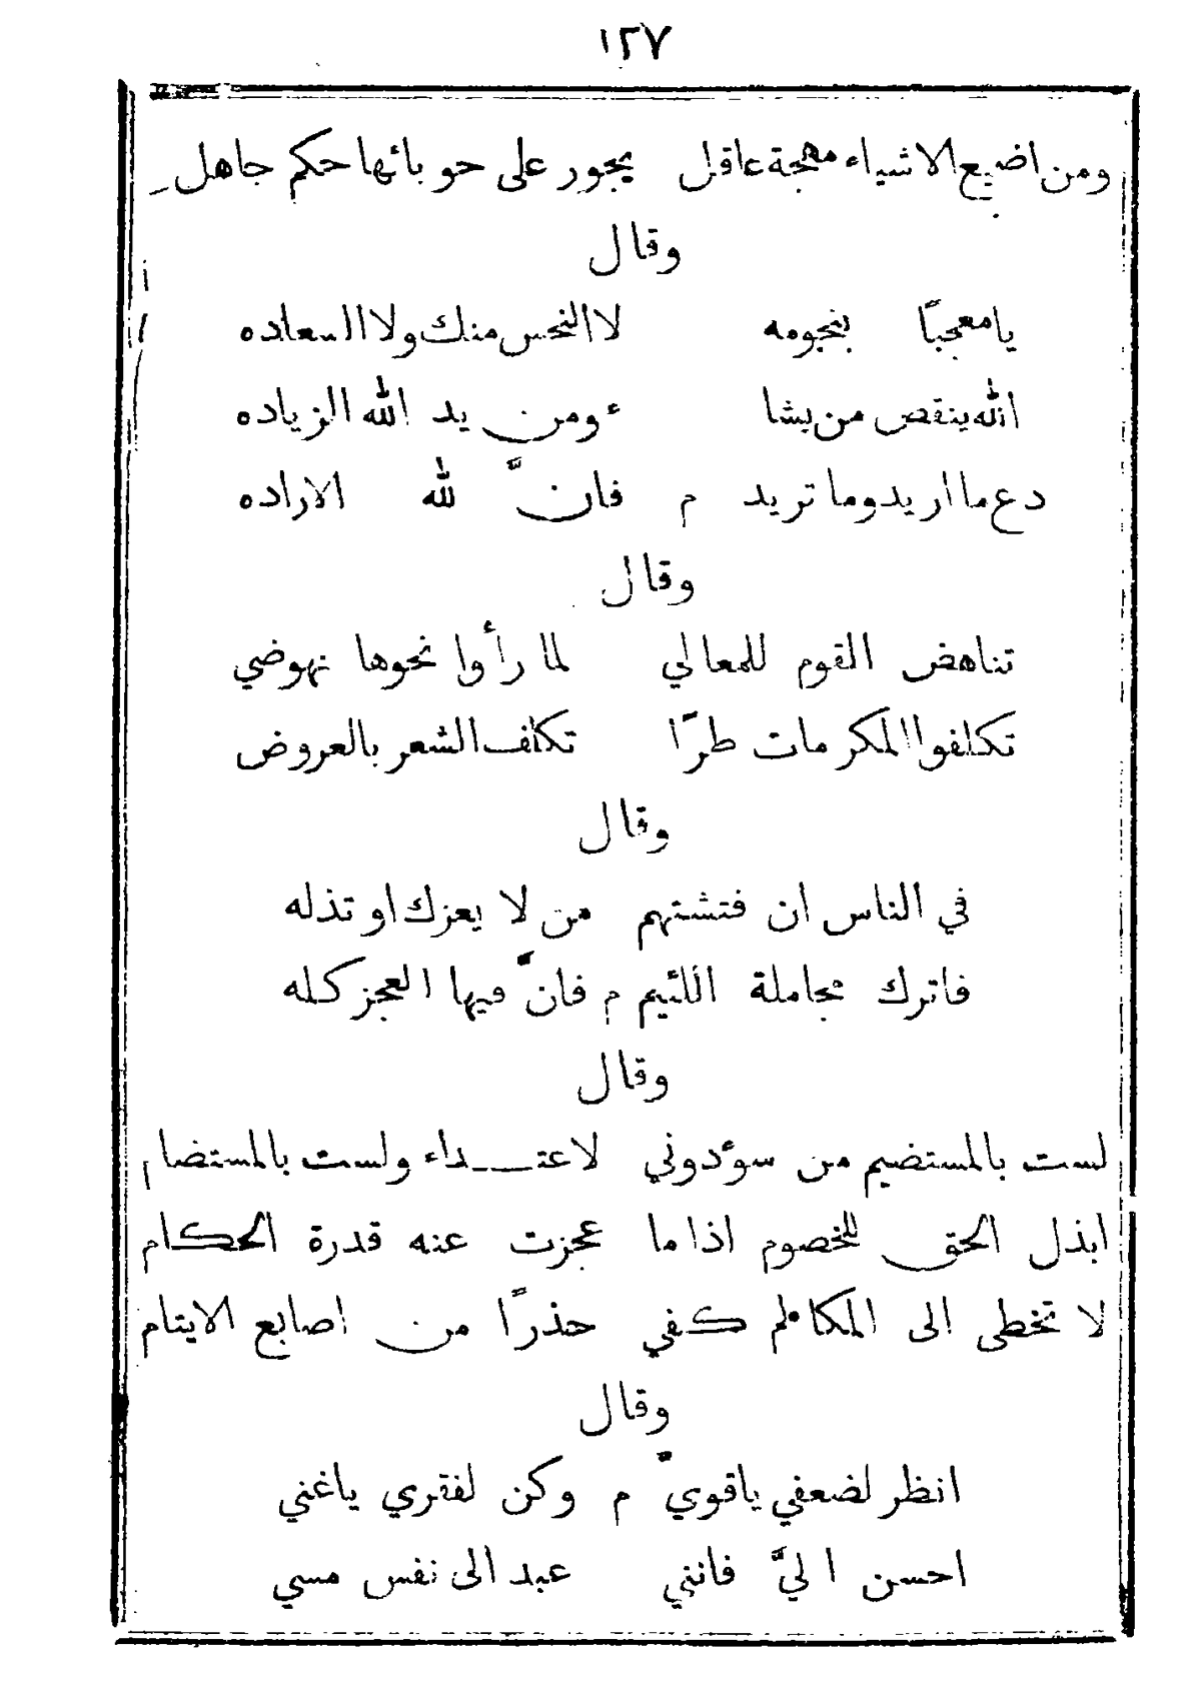 ١٢٧
ومن اضيع الاشياء مهجة عاقل يجور على حوبائها حكم جاهل
وقال
يا معجبًا بنجومه لا النحس منك ولا السعاده
الله ينقص من يشا ء ومن يد الله الزياده
دع ما اريد وما تريد م فانَّ لله الاراده
وقال
تناهض القوم للمعالي لما رأوا نحوها نهوضي
تكلفوا المكرمات طرًّا تكلف الشعر بالعروض
وقال
في الناس ان فتشتهم من لا يعزك او تذله
فاترك مجاملة اللئيم م فانَّ فيها العجز كله
وقال
لست بالمستضيم من سوءدوني لاعتداء ولست بالمستضام
ابذل الحق للخصوم اذا ما عجزت عنه قدرة الحكام
لا تخطى الى المكاملم كفي حذرًا من اصابع الايتام
وقال
انظر لضعفي ياقويّ م وكن لفقري ياغني
احسن اليَّ فانني عبد الى نفس مسي